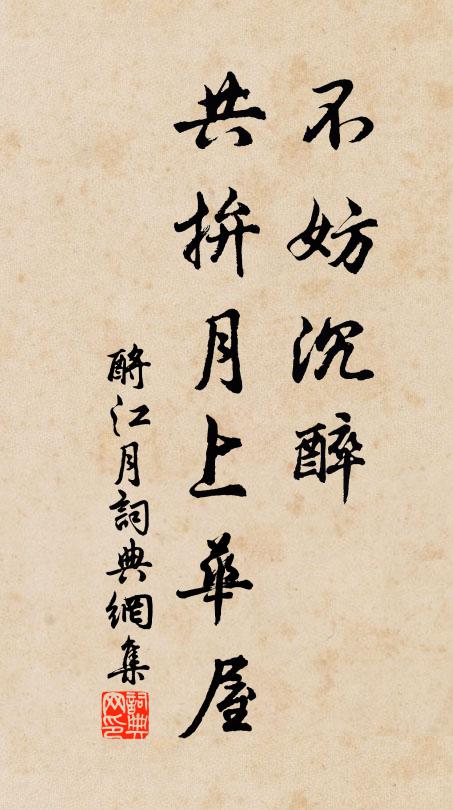 不妨沉醉
共拚月上華屋
酹江月詞典網集
詞典網印